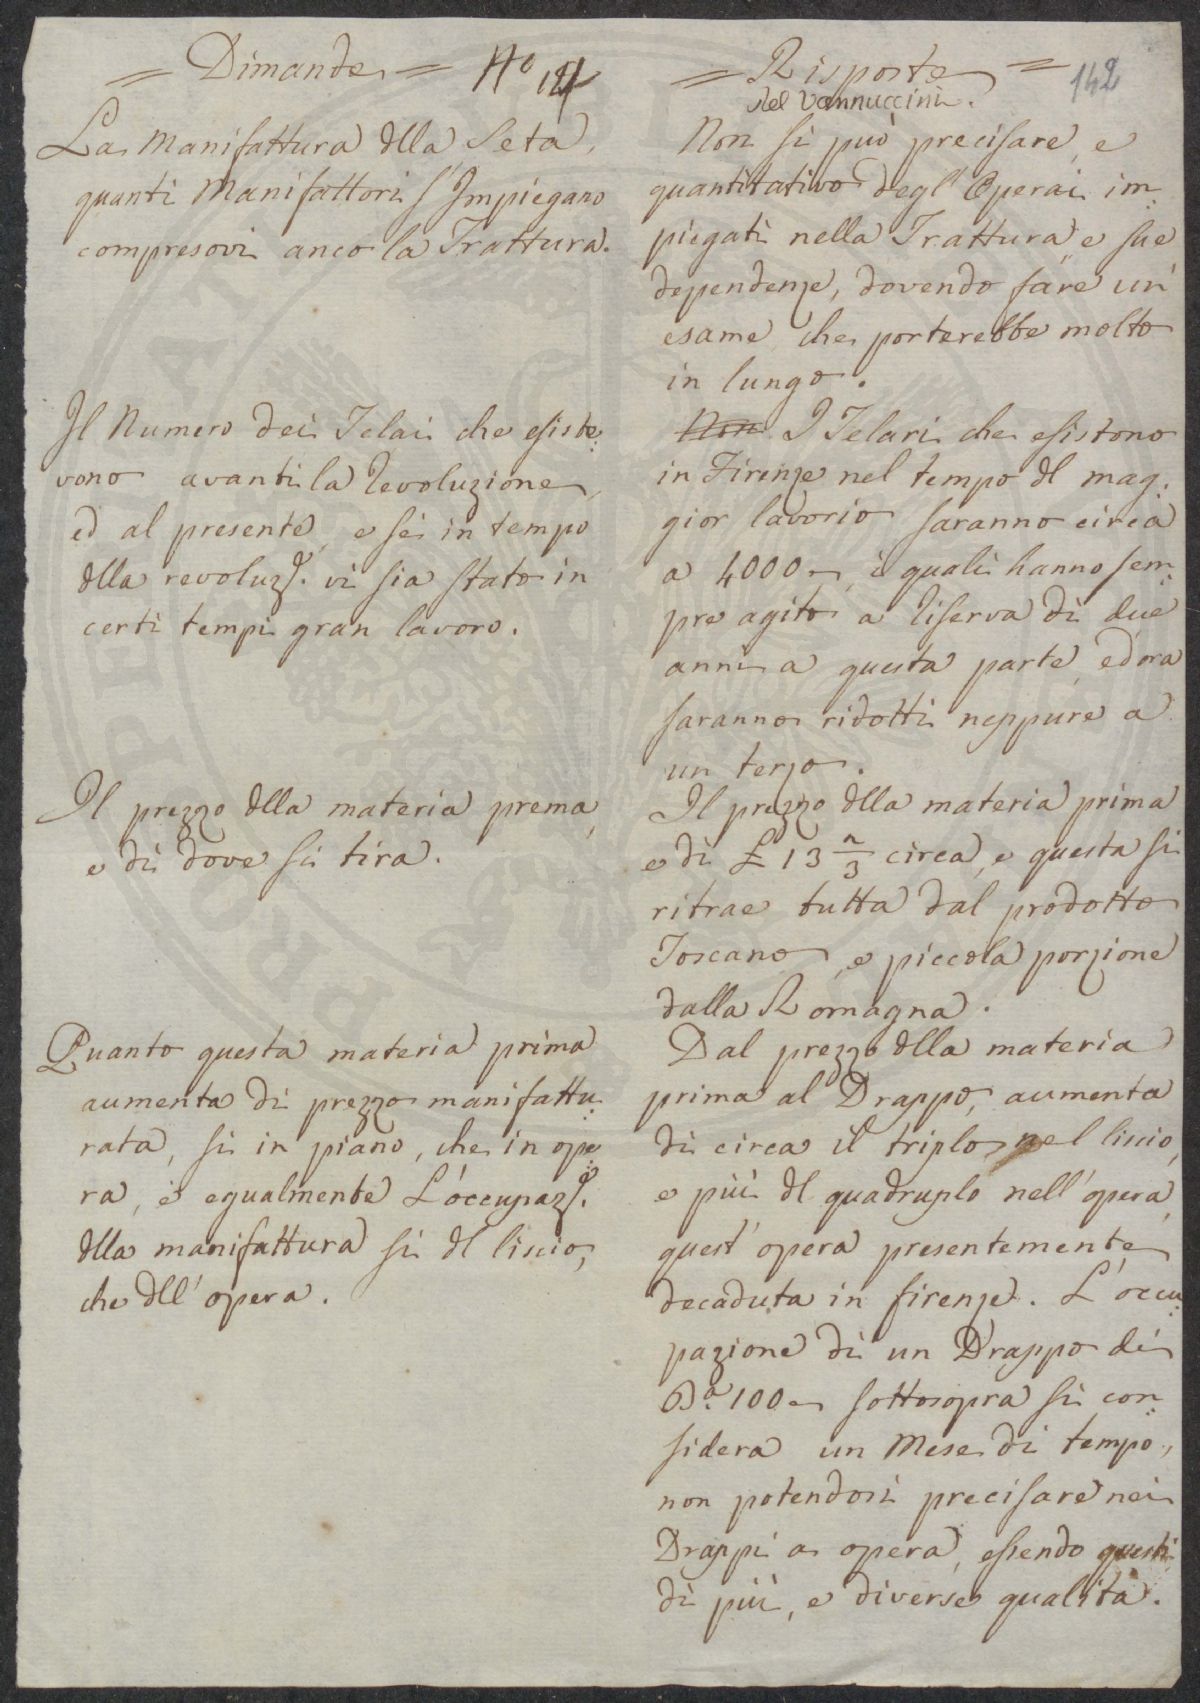 = Dimande =
No 121
La Manifattura dlla Seta,
quanti Manifattori s'Impiegano
compresovi anco la Trattura.
Il Numero dei Telai che esiste:
vono avanti la Revoluzione,
ed al presente, e se in tempo
dlla revoluze. vi sia stato in
certi tempi gran lavoro.
Il prezzo dlla materia prema,
e di dove si tira.
Quanto questa materia prima
aumenta di prezzo manifattu:
rata, si in piano, che in ope:
ra, e egualmente L'occupaze.
dlla manifattura si dl liscio,
che dll' opera.
= Risposte =
del Vannuccini.
142
Non si può precisare, e
quantitativo degl' Operai im:
piegati nella Trattura, e sue
dependenze, dovendo fare un'
esame, che porterebbe molto
in lungo.
Non I Telari che esistono
in Firenze nel tempo dl mag:
gior lavorio saranno circa
a 4000, i quali hanno sem:
pre agito a riserva di due
anni a questa parte, ed ora
saranno ridotti neppure a
un terzo.
Il prezzo dlla materia prima
e di £ 13 2/3 circa, e questa si
ritrae tutta dal prodotto
Toscano, e piccola porzione
dalla Romagna.
Dal prezzo dlla materia
prima al Drappo, aumenta
di circa il triplo nel liscio,
e più dl quadruplo nell'opera,
quest' opera presentemente
decaduta in firenze. L'occu:
pazione di un Drappo di
Ba. 100 sottosopra si con:
sidera un Mese di tempo,
non potendosi precisare nei
Drappi a opera, essendo questi
di più, e diverse qualità.